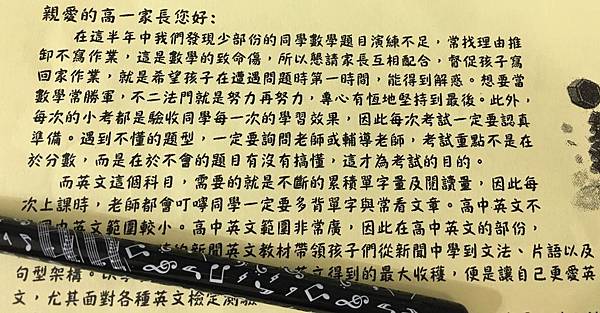 親愛的高一家長您好:
在這半年中我們發現少部份的同學數學題目演練不足，常找理由推
卸不寫作業，這是數學的致命傷，所以懇請家長互相配合，督促孩子寫
回家作業，就是希望孩子在遭遇問題時第一時間，能得到解惑。想要當
數學常勝軍，不二法門就是努力再努力，專心有恆地堅持到最後。此外，
每次的小考都是驗收同學每一次的學習效果，因此每次考試一定要認真
準備。遇到不懂的題型，一定要詢問老師或輔導老師，考試重點不是在
於分數，而是在於不會的題目有沒有搞懂，這才為考試的目的。
而英文這個科目，需要的就是不斷的累積單字量及閱讀量，因此每
次上課時，老師都會叮嚀同學一定要多背單字與常看文章。高中英文不
國中英文範圍較小。高中英文範圍非常廣，因此在高中英文的部份，
新聞英文教材帶領孩子們從新聞中學到文法、片語以及
句型架構。以
英文得到的最大收穫，便是讓自己更愛英
文，尤其面對各種英文檢定測驗